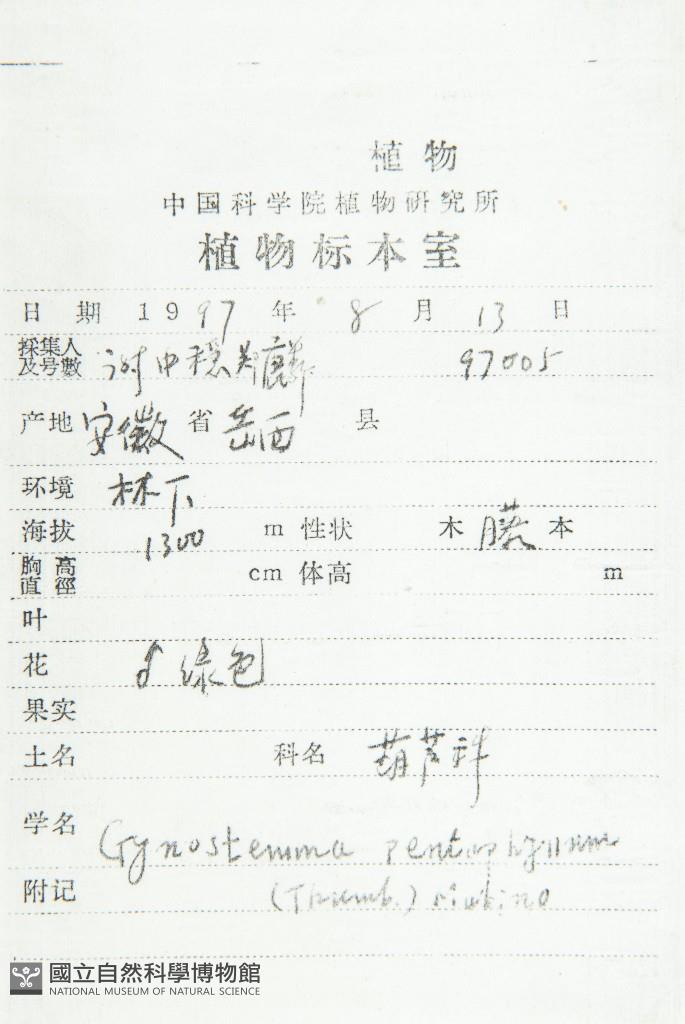 植物
中国科学院植物研究所
植物标本室
日期 1997 年 8 月 13 日
採集人及号數 谢中稳 97005
产地 安徽 省 岳西 县
环境 林下
海拔 1300 m 性状 木 藤 本
胸高直徑 cm 体高 m
叶
花 ♂ 绿色
果实
土名 科名 葫芦科
学名 Gynostemma pentaphyllum
附记 (Thunb.) Makino
國立自然科學博物館
NATIONAL MUSEUM OF NATURAL SCIENCE